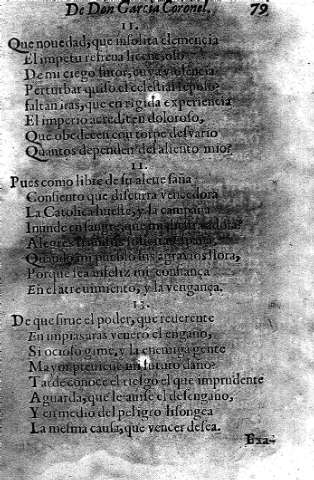 De Don Garcia Coronel. 79
11.
Que nouedad, que insolita clemencia
El impetu refrena licencioso
De mi ciego furor, cuya violencia
Perturbar quiso el celestial reposo?
faltan iras, que en rigida experiencia
El imperio acrediten doloroso,
Que obedecen con torpe desvario
Quantos dependen del aliento mio?
11.
Pues como libre de su aleue saña
Consiento que discurra vencedora
La Catolica hueste, y la campaña
Inunde en sangre, que mi
Alegres
Quando mi pueblo sus agravios llora,
Porque sea infeliz mi confiança
En el atreuimiento, y la vengança.
13.
De que sirue el poder, que reuerente
En impias aras venerò el engaño,
Si ocioso gime, y la enemiga gente
Mayor preuiene mi futuro daño?
Tarde conoce el riesgo el que imprudente
Aguarda, que le auise el desengaño,
Y en medio del peligro lisongea
La mesma causa, que vencer desea.
Exa-